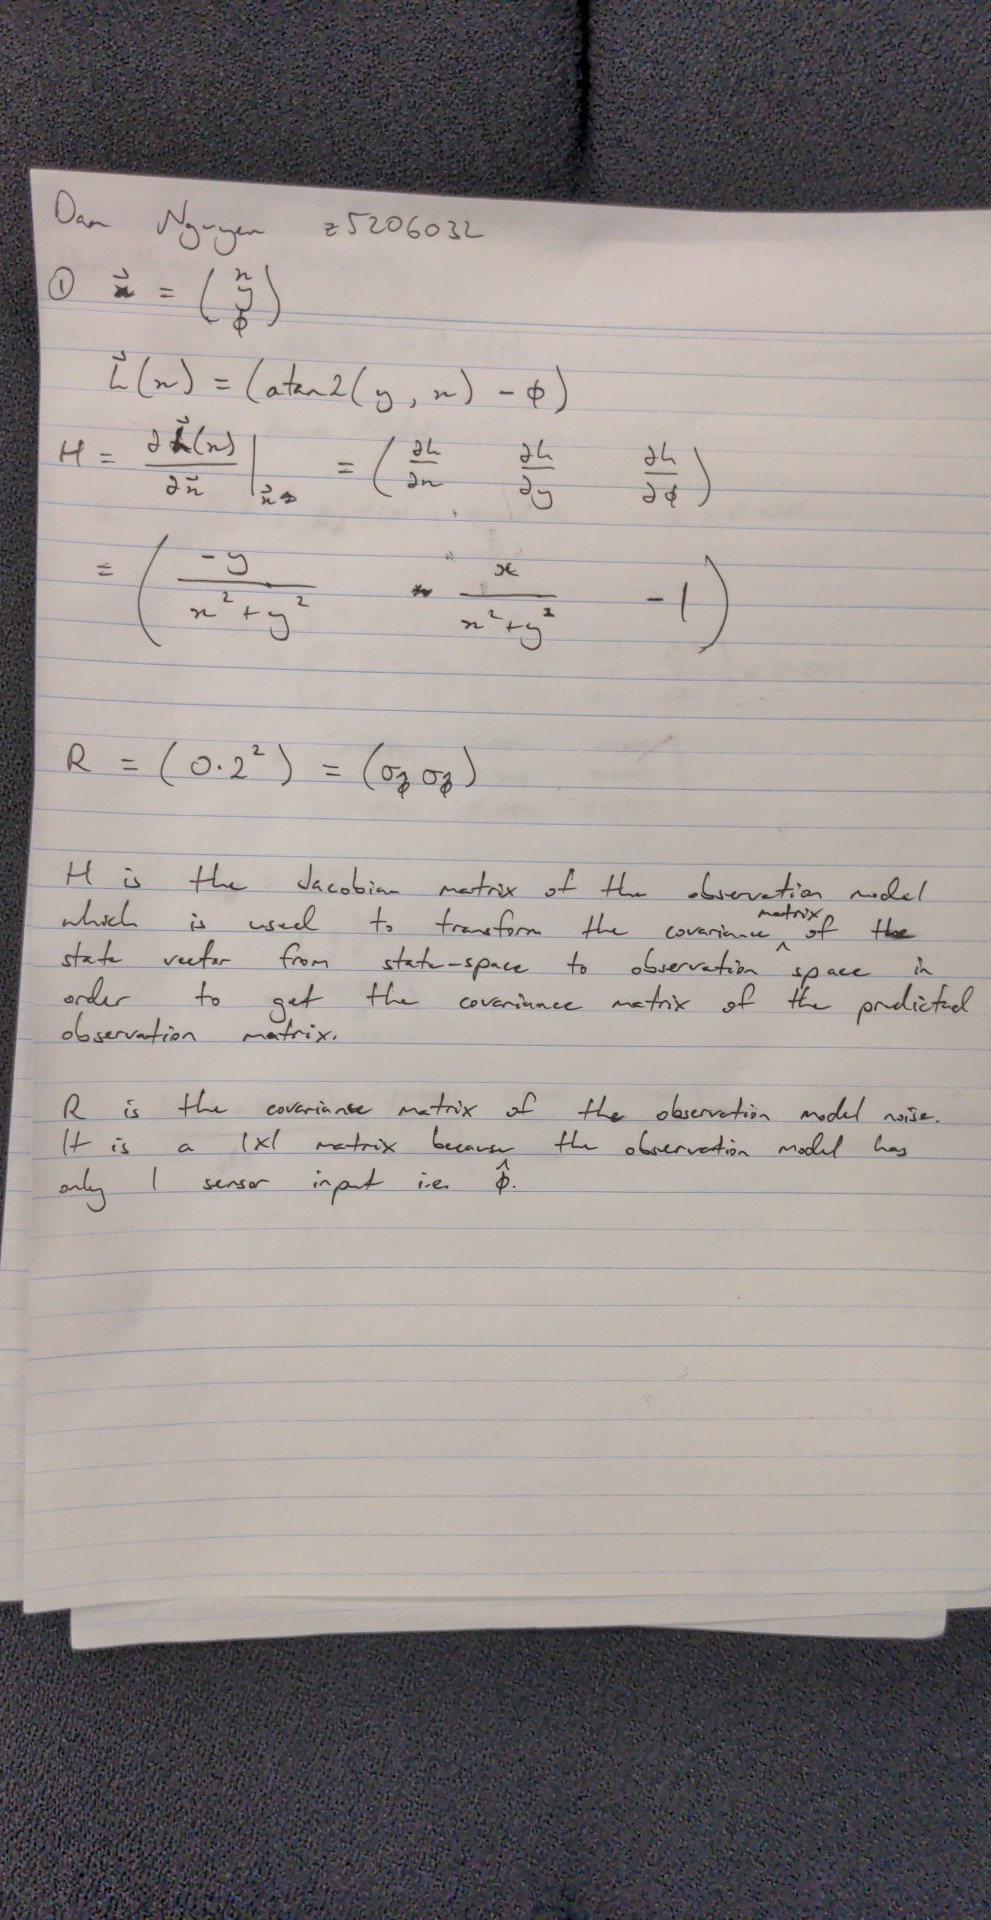 Dan Nguyen z5206032
① x⃗ = (x y ϕ)
h⃗(x) = (atan2(y, x) - ϕ)
H = ∂h⃗(x)/∂x⃗ | x⃗ = (∂h/∂x ∂h/∂y ∂h/∂ϕ)
= (-y/(x²+y²) x/(x²+y²) -1)
R = (0.2²) = (σ_ϕ̂ σ_ϕ̂)
H is the Jacobian matrix of the observation model
which is used to transform the covariance matrix of the
state vector from state-space to observation space in
order to get the covariance matrix of the predicted
observation matrix.
R is the covariance matrix of the observation model noise.
It is a 1x1 matrix because the observation model has
only 1 sensor input i.e. ϕ̂.